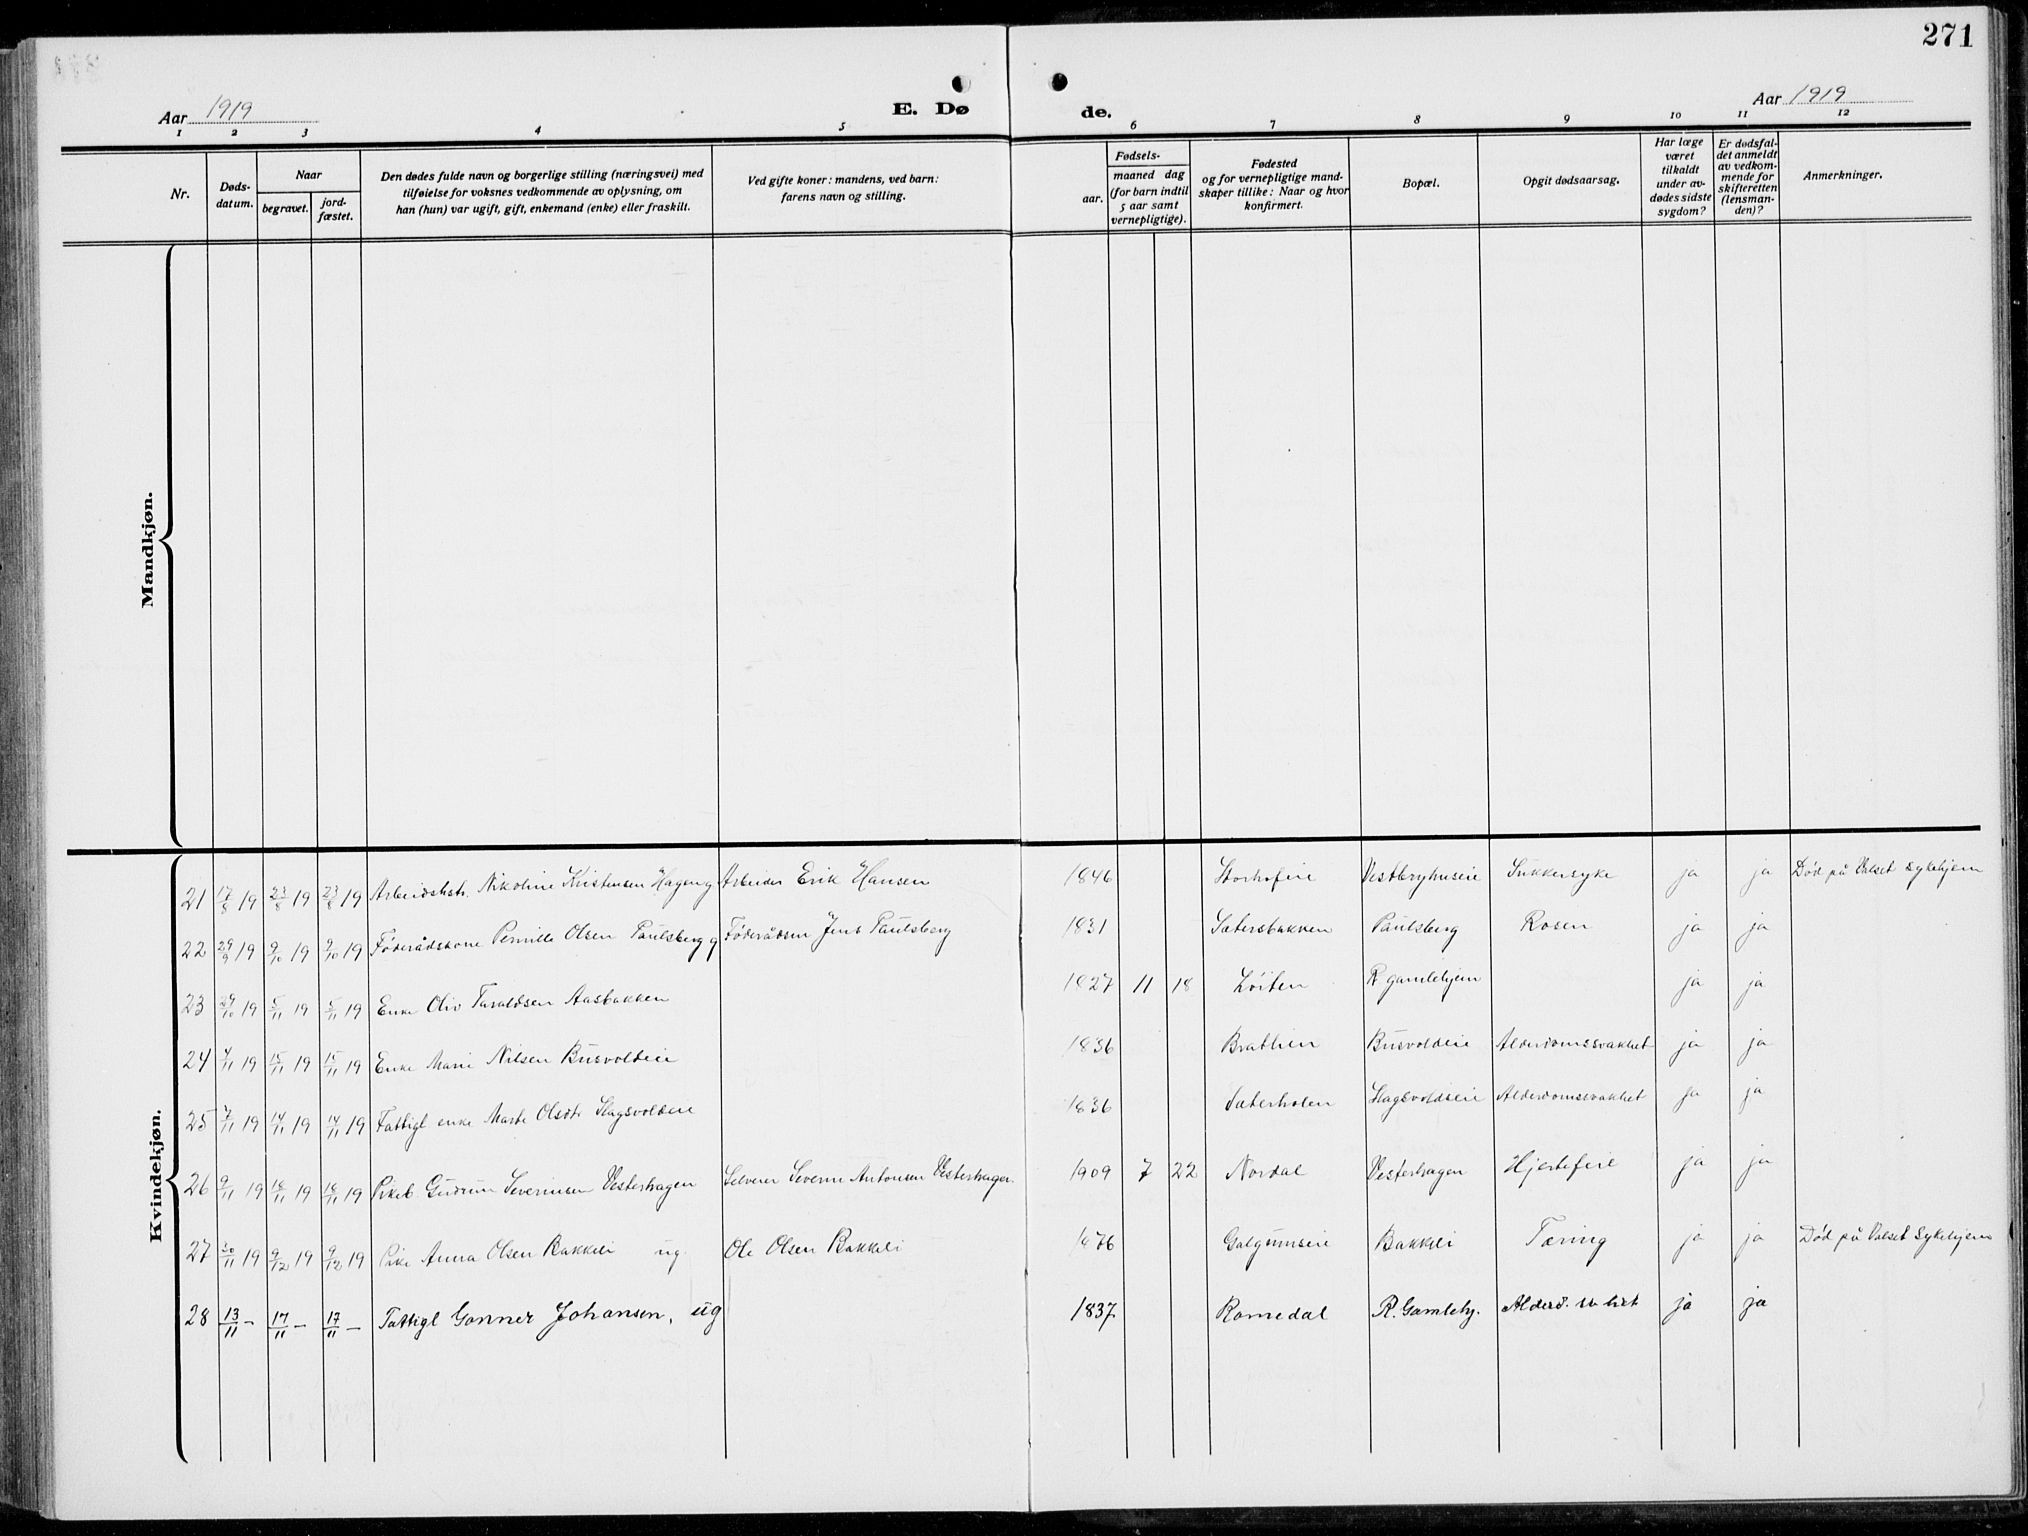 271
Aar 1919
E. Dø
de.
Aar 1919
1 2 3 4 5 6 7 8 9 10 11 12
Nr.
Døds-
datum.
Naar
begravet.
jord-
fæstet.
Den dødes fulde navn og borgerlige stilling (næringsvei) med
tilføielse for voksnes vedkommende av oplysning, om
han (hun) var ugift, gift, enkemand (enke) eller fraskilt.
Ved gifte koner: mandens, ved barn:
farens navn og stilling.
Fødsels-
aar.
maaned dag
(for barn indtil
5 aar samt
vernepligtige).
Fødested
og for vernepligtige mand-
skaper tillike: Naar og hvor
konfirmert.
Bopæl.
Opgit dødsaarsag.
Har læge
været
tilkaldt
under av-
dødes sidste
sygdom?
Er dødsfal-
det anmeldt
av vedkom-
mende for
skifteretten
(lensman-
den)?
Anmerkninger.
Mandkjøn.
Kvindekjøn.
21 17/8 19 23/8 19 23/8 19 Nikoline Kristensen Hagen g Arbeider Erik Hansen 1846 Storhofeie Vestbyhuseie Sukkersyke ja ja Død på Valset sykehjem
22 29/9 19 9/10 19 9/10 19 Føderådskone Pernille Olsen Paulsberg g Føderådsm Jens Paulsberg 1831 Sætersbakken Paulsberg Rosen ja ja
23 29/10 19 5/11 19 5/11 19 Enke Oliv Taraldsen Aasbakken 1827 11 18 Løiten R gamlehjem ja ja
24 7/11 19 15/11 19 15/11 19 Enke Marie Nilsen Busvoldeie 1836 Brathien Busvoldeie Alderdomssvakhet ja ja
25 7/11 19 14/11 19 14/11 19 Fattigl enke Marte Olsdtr Slagsvoldeie 1836 Sæterholen Slagsvoldseie Alderdomssvakhet ja ja
26 9/11 19 18/11 19 18/11 19 Pikeb. Gudrun Severinsen Vesterhagen Selveier Severin Antonsen Vesterhagen 1909 7 22 Nordal Vesterhagen Hjertefeil ja ja
27 30/11 19 9/12 19 9/12 19 Pike Anna Olsen Bakkeli ug. Ole Olsen Bakkeli 1876 Galgumseie Bakkeli Tæring ja ja Død på Valset Sykehjem
28 13/11 — 17/11 — 17/11 — Fattigl Gonner Johansen, ug 1837 Romedal R. Gamlehj. ja ja